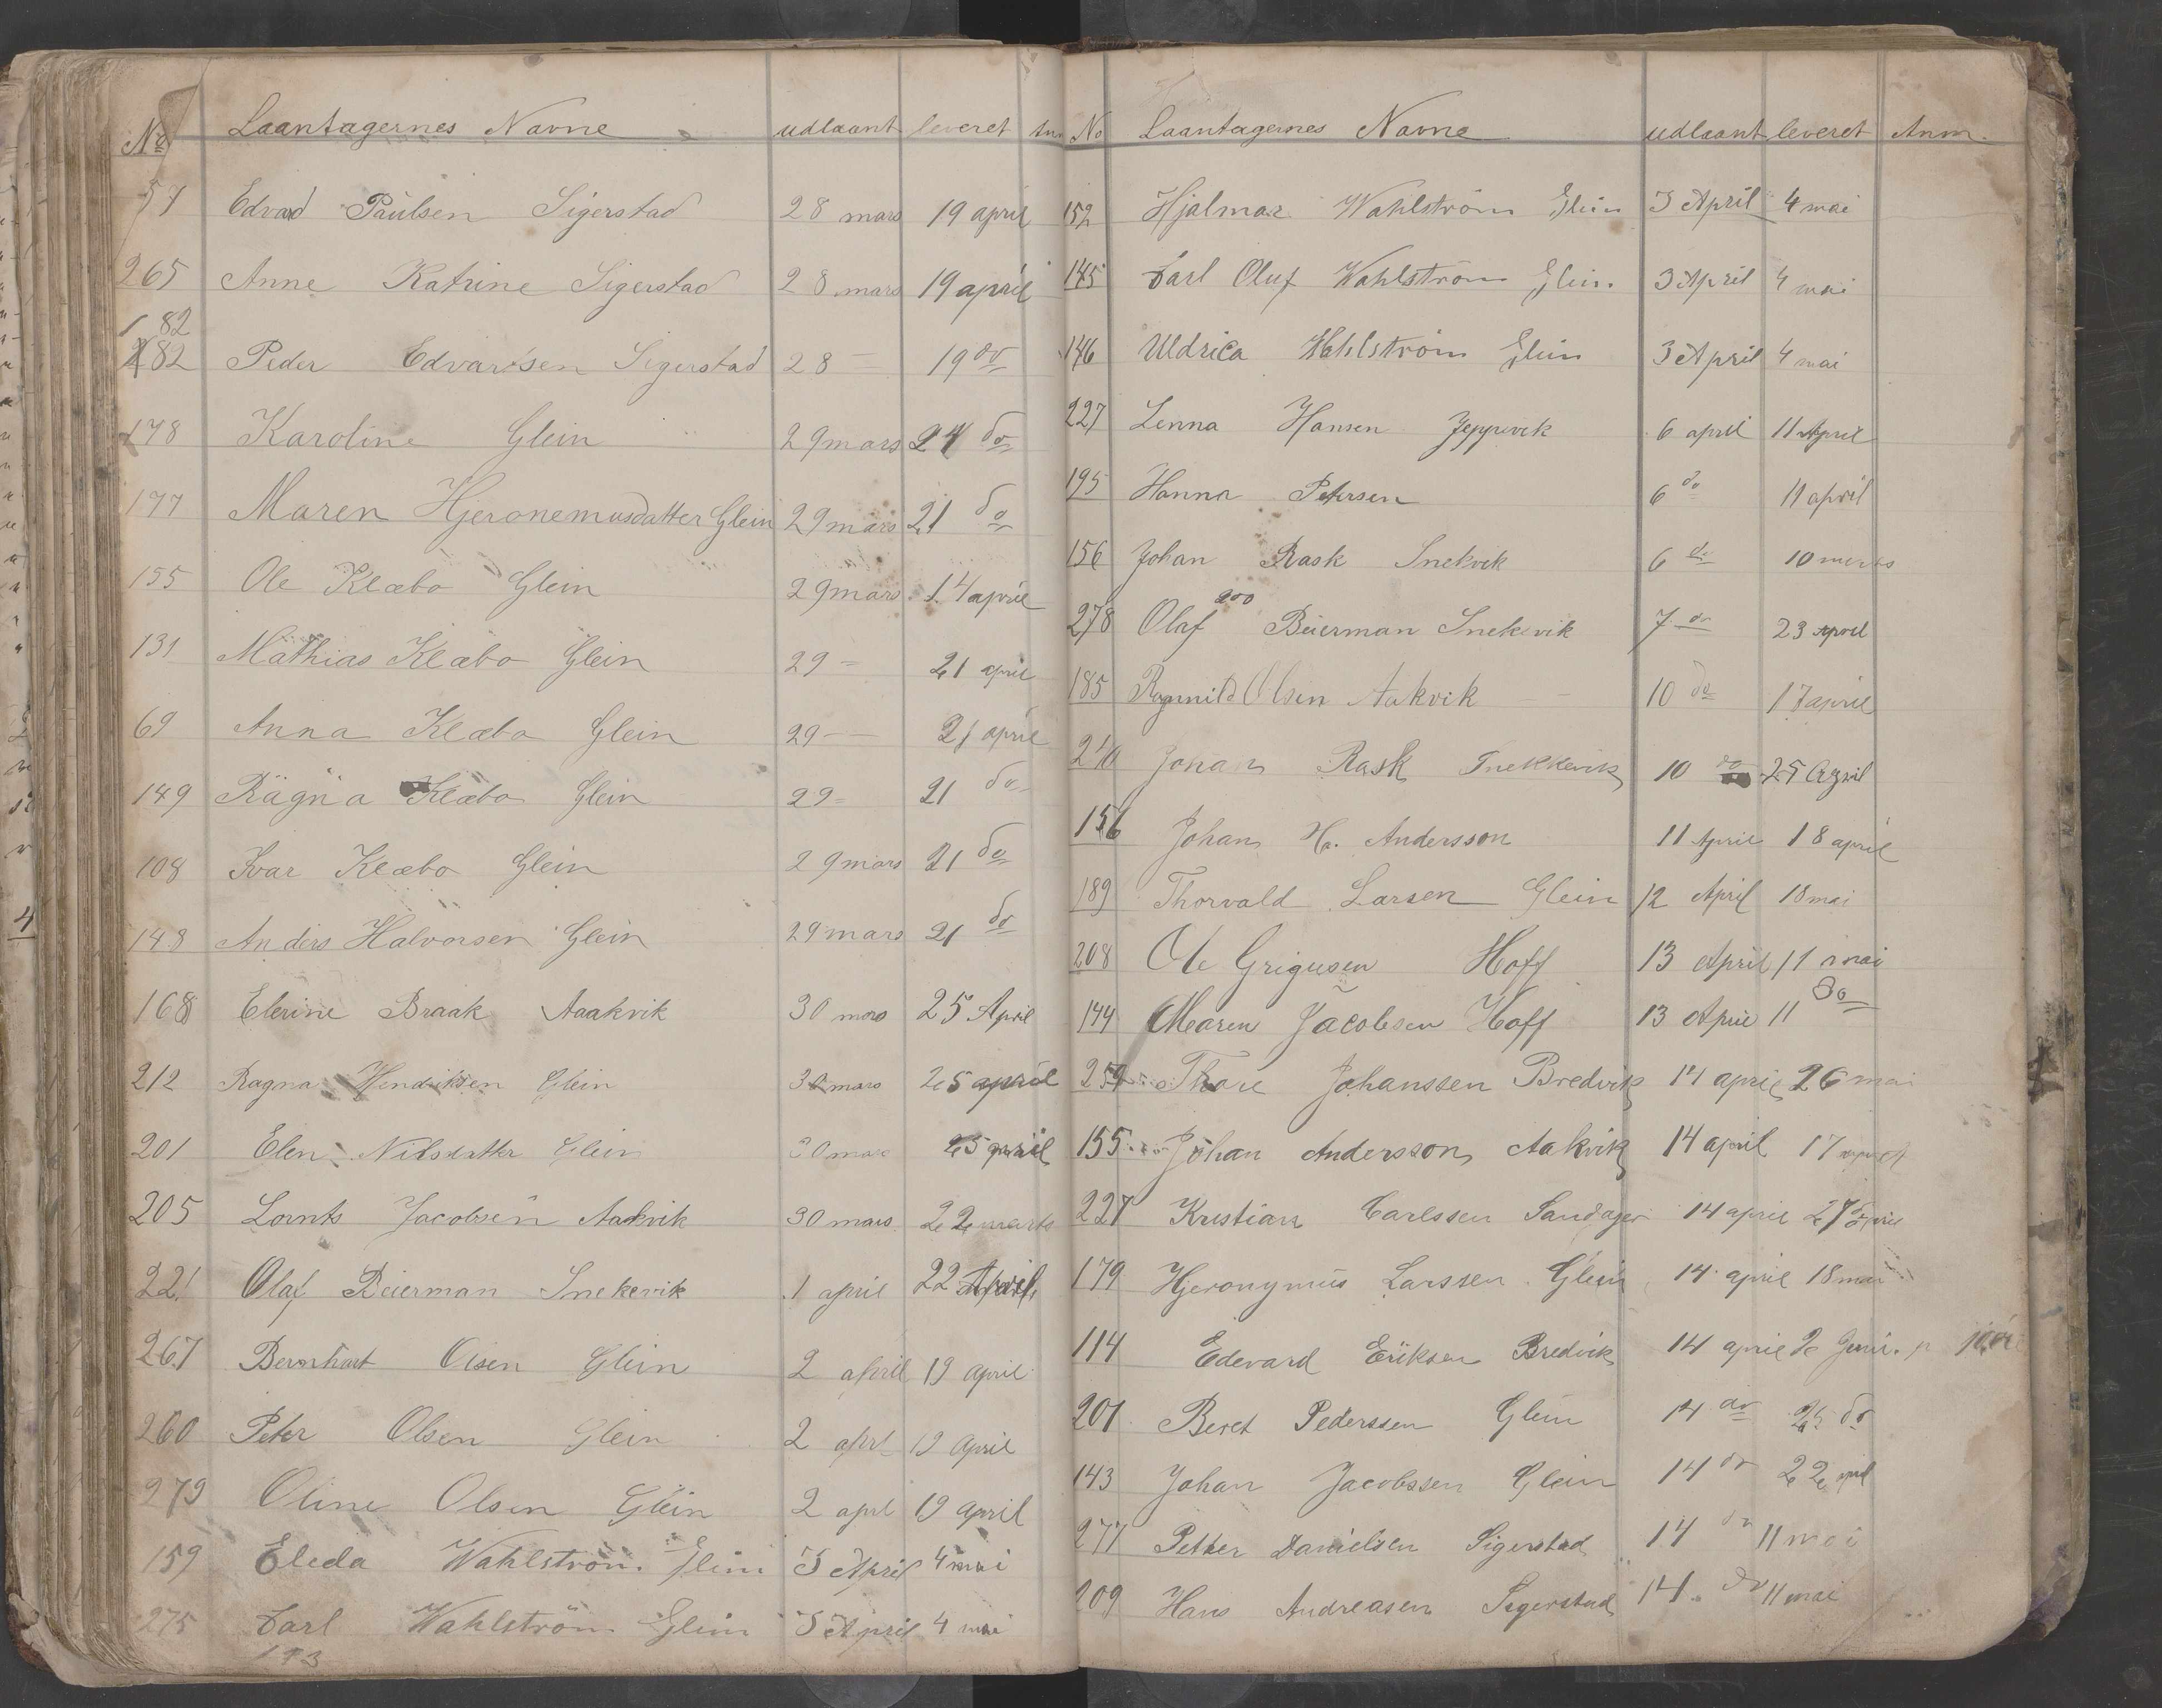 No Laantagernes Navne udlaant leveret Anm
57 Edvard Paulsen Sigerstad 28 mars 19 april
265 Anne Katrine Sigerstad 28 mars 19 april
182
282 Peder Edvartsen Sigerstad 28 — 19 do
178 Karoline Glein 29 mars 24 do
177 Maren Hjeronemusdatter Glein 29 mars 21 do
155 Ole Klæbo Glein 29 mars 14 april
131 Mathias Klæbo Glein 29 — 21 april
69 Anna Klæbo Glein 29 — 21 april
149 Ragna Klæbo Glein 29 = 21 do
108 Ivar Klæbo Glein 29 mars 21 do
148 Anders Halvorsen Glein 29 mars 21 do
168 Elerine Braak Aaakvik 30 mars 25 April
212 Ragna Hendriksen Glein 30 mars 25 april
201 Elen Nilsdatter Glein 30 mars 25 april
205 Lornts Jacobsen Aakvik 30 mars 22 marts
221 Olaf Beierman Snekevik 1 april 22 April
267 Bernhart Olsen Glein 2 april 19 april
260 Peter Olsen Glein 2 aprl 19 April
279 Oline Olsen Glein 2 aprl 19 april
159 Eleda Wahlström Glein 3 April 4 mai
275 Carl Wahlström Glein 3 April 4 mai
173
No Laantagernes Navne udlaant leveret Anm.
152 Hjalmar Wahlström Glein 3 April 4 mai
145 Carl Oluf Wahlström Glein. 3 April 4 mai
146 Uldrica Wahlström Glein 3 April 4 mai
227 Lenna Hansen Jeppevik 6 april 11 April
195 Hanna Petersen 6 do 11 april
156 Johan Rask Snekvik 6 do 10 mars
200
278 Olaf Beierman Snekevik 7 do 23 April
185 Ragnnild Olsen Aakvik 10 do 17 april
210 Johan Rask Snekkevik 10 do 25 April
156 Johan H. Andersson 11 April 18 april
189 Thorvald Larsen Glein 12 April 18 mai
208 Ole Grigusen Hoff 13 April 11 mai
144 Maren Jacobsen Hoff 13 April 11 do
259 Thore Johanssen Bredvik 14 april 26 mai
155 Johan Andersson Aakvik 14 april 17 april
227 Kristian Carlssen Sandager 14 april 27 april
179 Hjeronymus Larssen Glein 14 april 18 mai
114 Edevard Eriksen Bredvik 14 april 2 Juni.
201 Beret Pederssen Glein 14 do 25 do
143 Johan Jacobssen Glein 14 do 22 april
277 Petter Danielsen Sigerstad 14 do 11 mai
209 Hans Andreasen Segerstad 14. do 11 mai